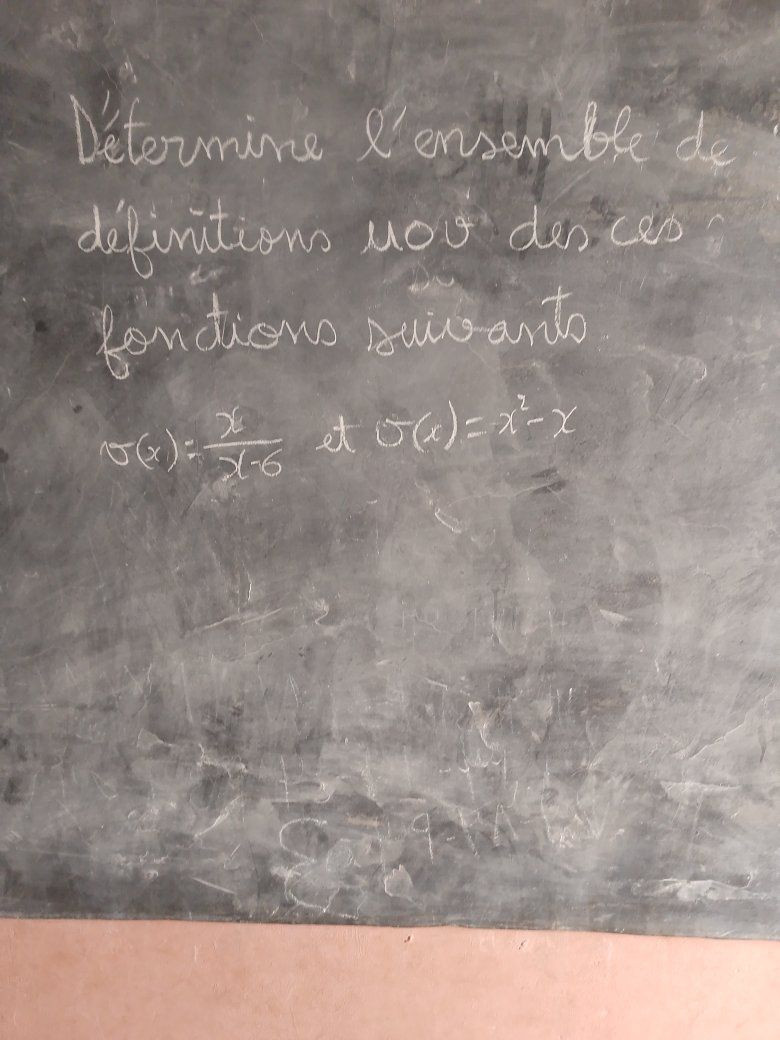 Détermine l'ensemble de
définitions uov des ces
fonctions suivants
v(x) = x/x-6 et v(x) = x²-x